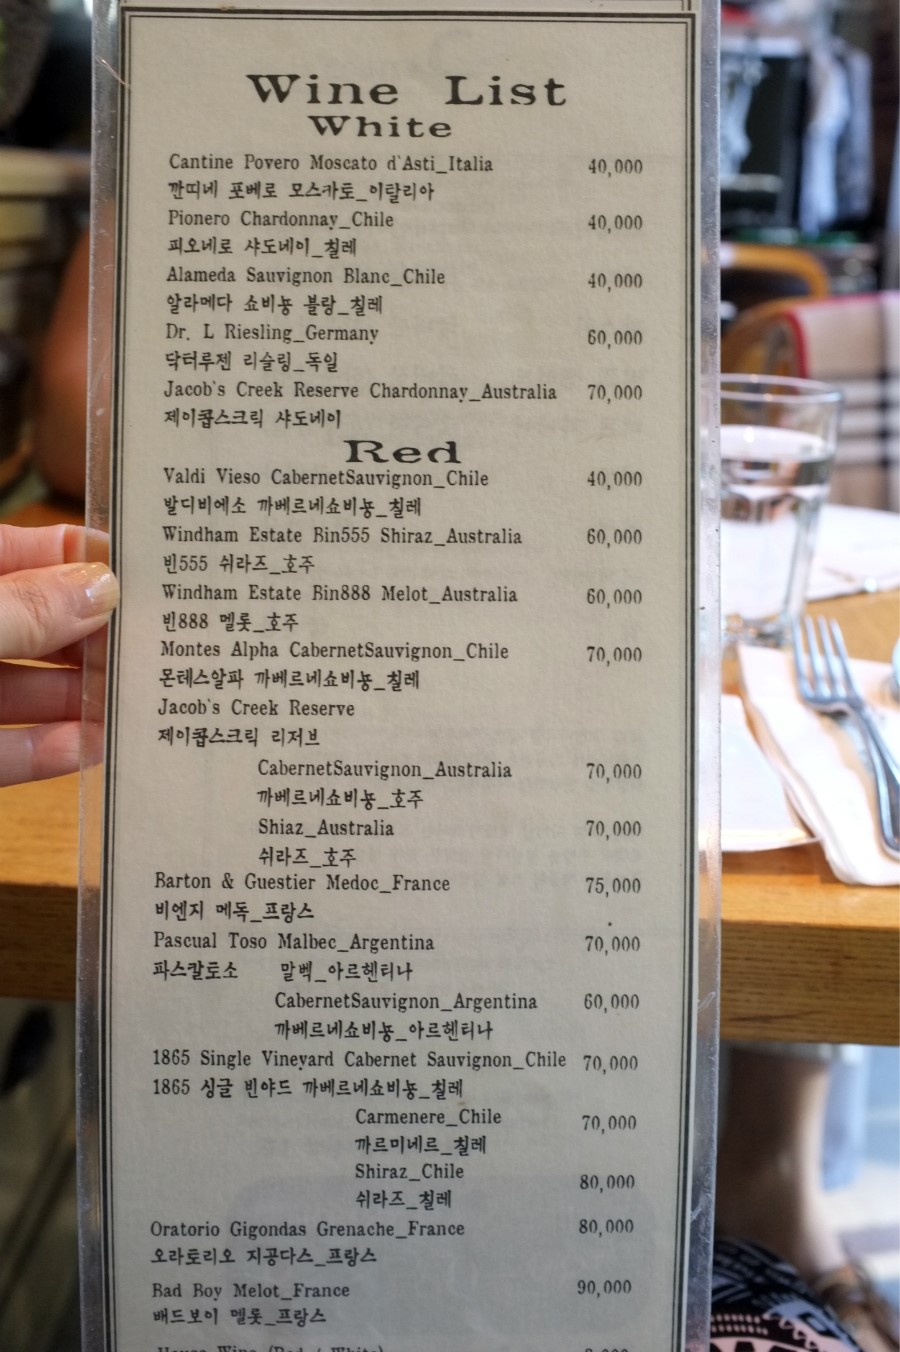 Wine List
White
Cantine Povero Moscato d'Asti_Italia 40,000
깐띠네 포베로 모스카토_이탈리아
Pionero Chardonnay_Chile 40,000
피오네로 샤도네이_칠레
Alameda Sauvignon Blanc_Chile 40,000
알라메다 쇼비뇽 블랑_칠레
Dr. L Riesling_Germany 60,000
닥터루젠 리슬링_독일
Jacob's Creek Reserve Chardonnay_Australia 70,000
제이콥스크릭 샤도네이
Red
Valdi Vieso CabernetSauvignon_Chile 40,000
발디비에소 까베르네쇼비뇽_칠레
Windham Estate Bin555 Shiraz_Australia 60,000
빈555 쉬라즈_호주
Windham Estate Bin888 Melot_Australia 60,000
빈888 멜롯_호주
Montes Alpha CabernetSauvignon_Chile 70,000
몬테스알파 까베르네쇼비뇽_칠레
Jacob's Creek Reserve
제이콥스크릭 리저브
CabernetSauvignon_Australia 70,000
까베르네쇼비뇽_호주
Shiaz_Australia 70,000
쉬라즈_호주
Barton & Guestier Medoc_France 75,000
비엔지 메독_프랑스
Pascual Toso Malbec_Argentina 70,000
파스칼토소 말벡_아르헨티나
CabernetSauvignon_Argentina 60,000
까베르네쇼비뇽_아르헨티나
1865 Single Vineyard Cabernet Sauvignon_Chile 70,000
1865 싱글 빈야드 까베르네쇼비뇽_칠레
Carmenere_Chile 70,000
까르미네르_칠레
Shiraz_Chile 80,000
쉬라즈_칠레
Oratorio Gigondas Grenache_France 80,000
오라토리오 지공다스_프랑스
Bad Boy Melot_France 90,000
배드보이 멜롯_프랑스
House Wine (Red / White)